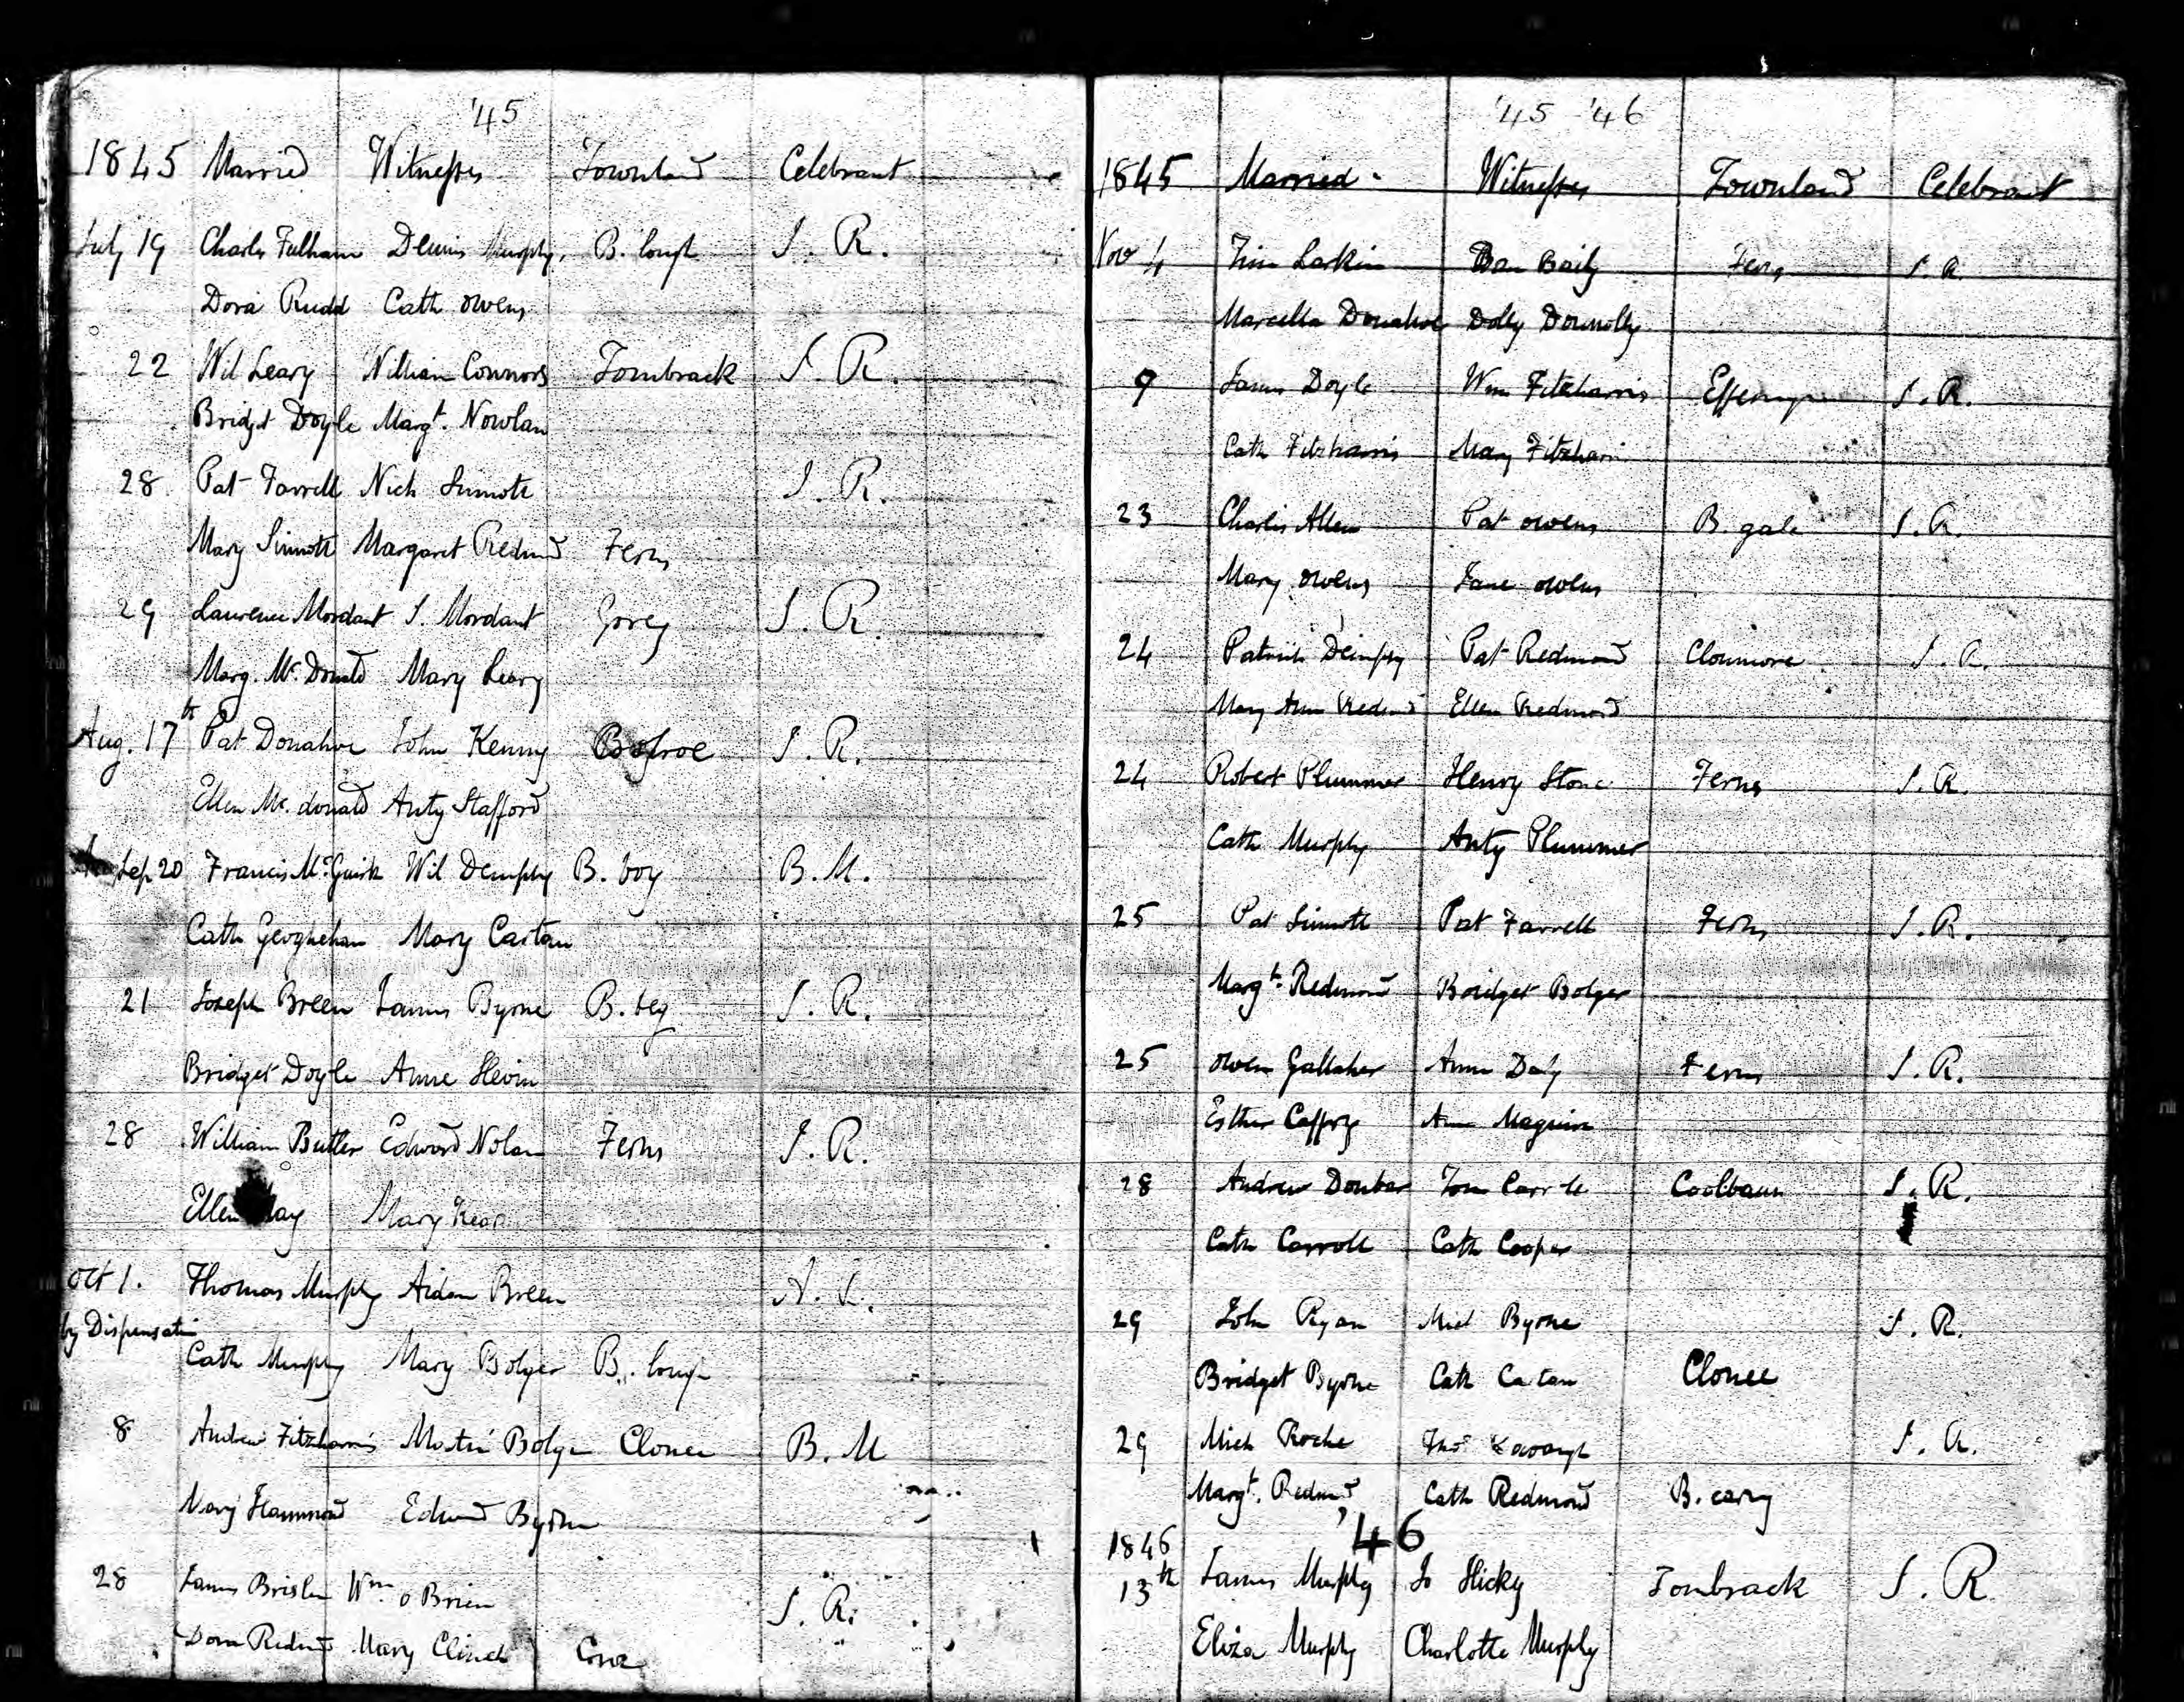 '45
1845 Married Witnesses Townland Celebrant
July 19 Charles Fulham Dennis Murphy B. lough J. R.
Dora Rudd Cath Owens
22 Wil Leary William Connors Tombrack J. R.
Bridget Doyle Margt. Nowlan
28 Pat Farrell Nich Sinnott J. R.
Mary Sinnott Margaret Redmd Ferns
29 Laurence Mordant J. Mordant Gorey J. R.
Marg. Mc. Donald Mary Leary
Aug. 17th Pat Donahoe John Kenny J. R.
Ellen Mc. donald Anty Stafford
Sep 20 Francis Mc. Guirk Wil Dempsy B. boy B. M.
Cath Geoghehan Mary Cartan
21 Joseph Breen James Byrne B. beg J. R.
Bridget Doyle Anne Slevin
28 William Butler Edward Nolan Ferns J. R.
Ellen Mary
Oct 1. Thomas Murphy Aidan Breen
by Dispensation
Cath Murphy Mary Bolger B. lough
8 Andrew Fitzharris Martin Bolger Clonee B. M
Mary Hammond Edward Byrne
28 James Brislen Wm O Brien J. R.
Dora Redmd Mary Clinch
'45 '46
1845 Married Witnesses Townland Celebrant
Nov 4 Tim Larkin Dan Baily Ferns J. R.
Marcella Donahoe Dolly Donnolly
9 James Doyle Wm Fitzharris J. R.
Cath Fitzharris Mary Fitzharris
23 Charles Allen Pat Owens B. gale J. R.
Mary Owens Jane Owens
24 Patrick Dempsy Pat Redmond Clonmore J. R.
Mary Ann Redmd Ellen Redmond
24 Robert Plummer Henry Stone Ferns J. R.
Cath Murphy Anty Plummer
25 Pat Sinnott Pat Farrell Ferns J. R.
Margt. Redmond Bridget Bolger
25 Owen Gallaher Anne Daly Ferns J. R.
Esther Caffry Ann Maguire
28 Andrew Dunbar Tom Carroll Coolbaun J. R.
Cath Carroll Cath Cooper
29 John Ryan Mich Byrne J. R.
Bridget Byrne Cath Cartan Clonee
29 Mich Roche Thos Kavanagh J. R.
Margt. Redmd Cath Redmond B. carny
1846 '46
13th James Murphy Jo Hicky Tombrack J. R
Eliza Murphy Charlotte Murphy